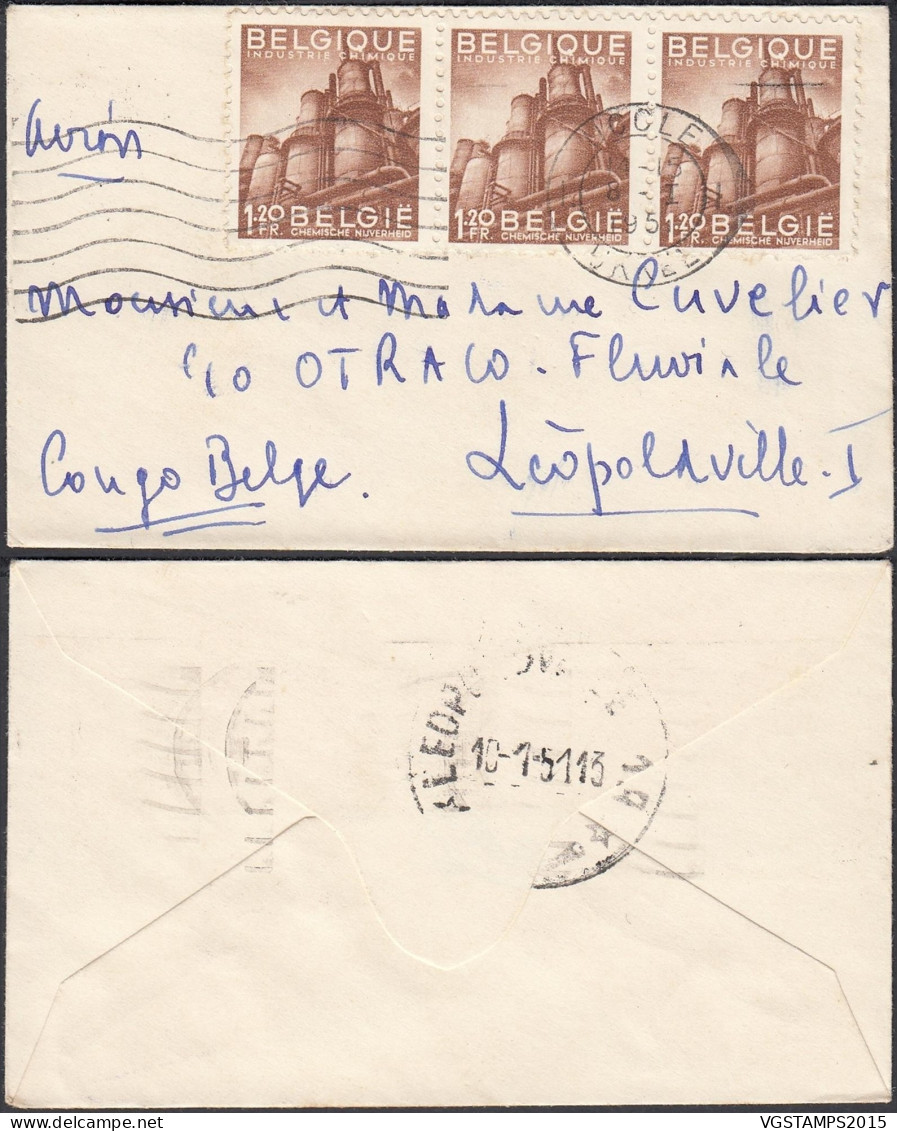 BELGIQUE BELGIQUE BELGIQUE
INDUSTRIE CHIMIQUE INDUSTRIE CHIMIQUE INDUSTRIE CHIMIQUE
1.20 FR. BELGIË 1.20 FR. BELGIË 1.20 FR. BELGIË
CHEMISCHE NIJVERHEID CHEMISCHE NIJVERHEID CHEMISCHE NIJVERHEID
CCLE
8 - I
195
Avion
Monsieur et Madame Cuvelier
c/o OTRACO - Fluviale
Congo Belge. Léopoldville - I
10-1-5113
VGSTAMPS2015